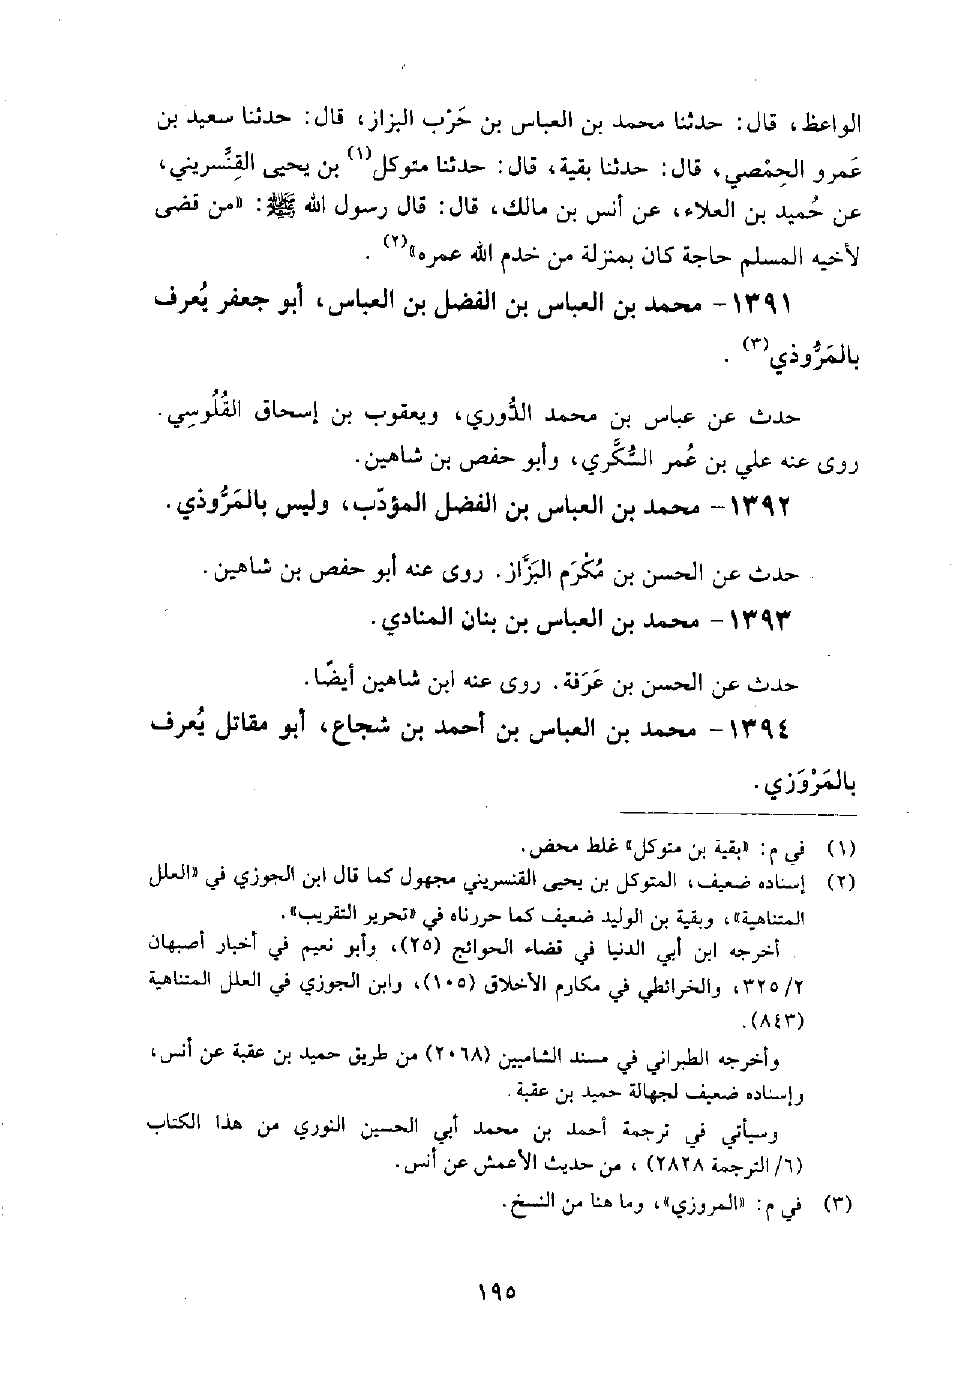 الواعظ، قال: حدثنا محمد بن العباس بن حَرْب البزاز، قال: حدثنا سعيد بن
عَمرو الحِمْصي، قال: حدثنا بقية، قال: حدثنا متوكل(١) بن يحيى القِنَّسريني،
عن حُميد بن العلاء، عن أنس بن مالك، قال: قال رسول الله ﷺ: «من قضى
لأخيه المسلم حاجة كان بمنزلة من خدم الله عمره»(٢) .
١٣٩١- محمد بن العباس بن الفضل بن العباس، أبو جعفر يُعرف
بالمَرُّوذي(٣) .
حدث عن عباس بن محمد الدُّوري، ويعقوب بن إسحاق القُلُوسي.
روى عنه علي بن عُمر السُّكَّري، وأبو حفص بن شاهين.
١٣٩٢- محمد بن العباس بن الفضل المؤدّب، وليس بالمَرُّوذي.
حدث عن الحسن بن مُكْرَم البَزَّاز. روى عنه أبو حفص بن شاهين.
١٣٩٣- محمد بن العباس بن بنان المنادي.
حدث عن الحسن بن عَرَفة. روى عنه ابن شاهين أيضًا.
١٣٩٤- محمد بن العباس بن أحمد بن شجاع، أبو مقاتل يُعرف
بالمَرْوَزي.
(١) في م: «بقية بن متوكل» غلط محض.
(٢) إسناده ضعيف، المتوكل بن يحيى القنسريني مجهول كما قال ابن الجوزي في «العلل
المتناهية»، وبقية بن الوليد ضعيف كما حررناه في «تحرير التقريب».
أخرجه ابن أبي الدنيا في قضاء الحوائج (٢٥)، وأبو نعيم في أخبار أصبهان
٢/ ٣٢٥، والخرائطي في مكارم الأخلاق (١٠٥)، وابن الجوزي في العلل المتناهية
(٨٤٣).
وأخرجه الطبراني في مسند الشاميين (٢٠٦٨) من طريق حميد بن عقبة عن أنس،
وإسناده ضعيف لجهالة حميد بن عقبة.
وسيأتي في ترجمة أحمد بن محمد أبي الحسين النوري من هذا الكتاب
(٦/ الترجمة ٢٨٢٨) ، من حديث الأعمش عن أنس.
(٣) في م: «المروزي»، وما هنا من النسخ.
١٩٥